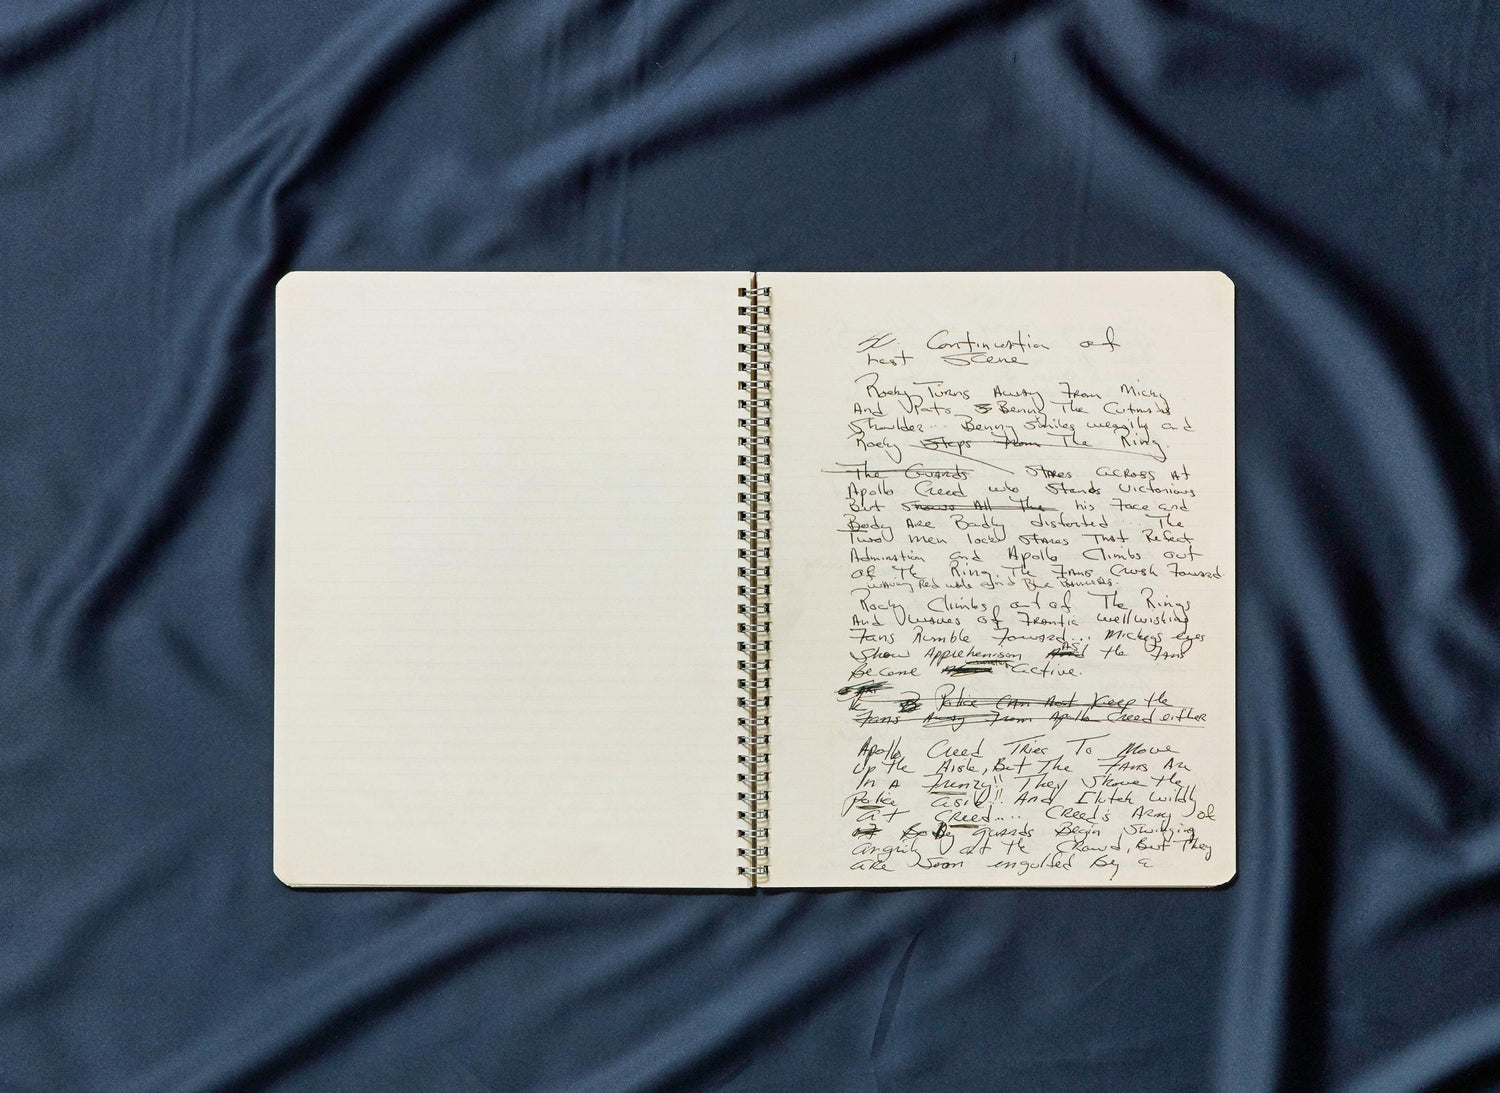 Continuation of
Last Scene
Rocky Turns Away From Micky
And Pats Benny The Cutmans
Shoulder... Benny smiles weakily and
Rocky Steps From The Ring.
The Guards Stares across At
Apollo Creed who Stands victorious
But Shows All The his Face and
Body Are Badly distorted... The
Two men lock stares That Reflect
Admiration and Apollo Climbs out
of The Ring. The Fans Crush Foward
waving Red white and Blue Banners.
Rocky Climbs out of The Rings
And Waves of Frantic wellwishing
Fans Rumble Foward... Mickeys eyes
Show Apprehenison As the Fans
become active.
Police Can Not Keep the
Fans Away From Apollo Creed either
Apollo Creed Tries To Move
up the Aisle, But The Fans Are
In A Frenzy!! They Shove the
Police Aside!! And Clutch wildly
at Creed.... Creed's Army of
Body guards Begin Swinging
angrily at the Crowd, But They
are Soon engulfed By a